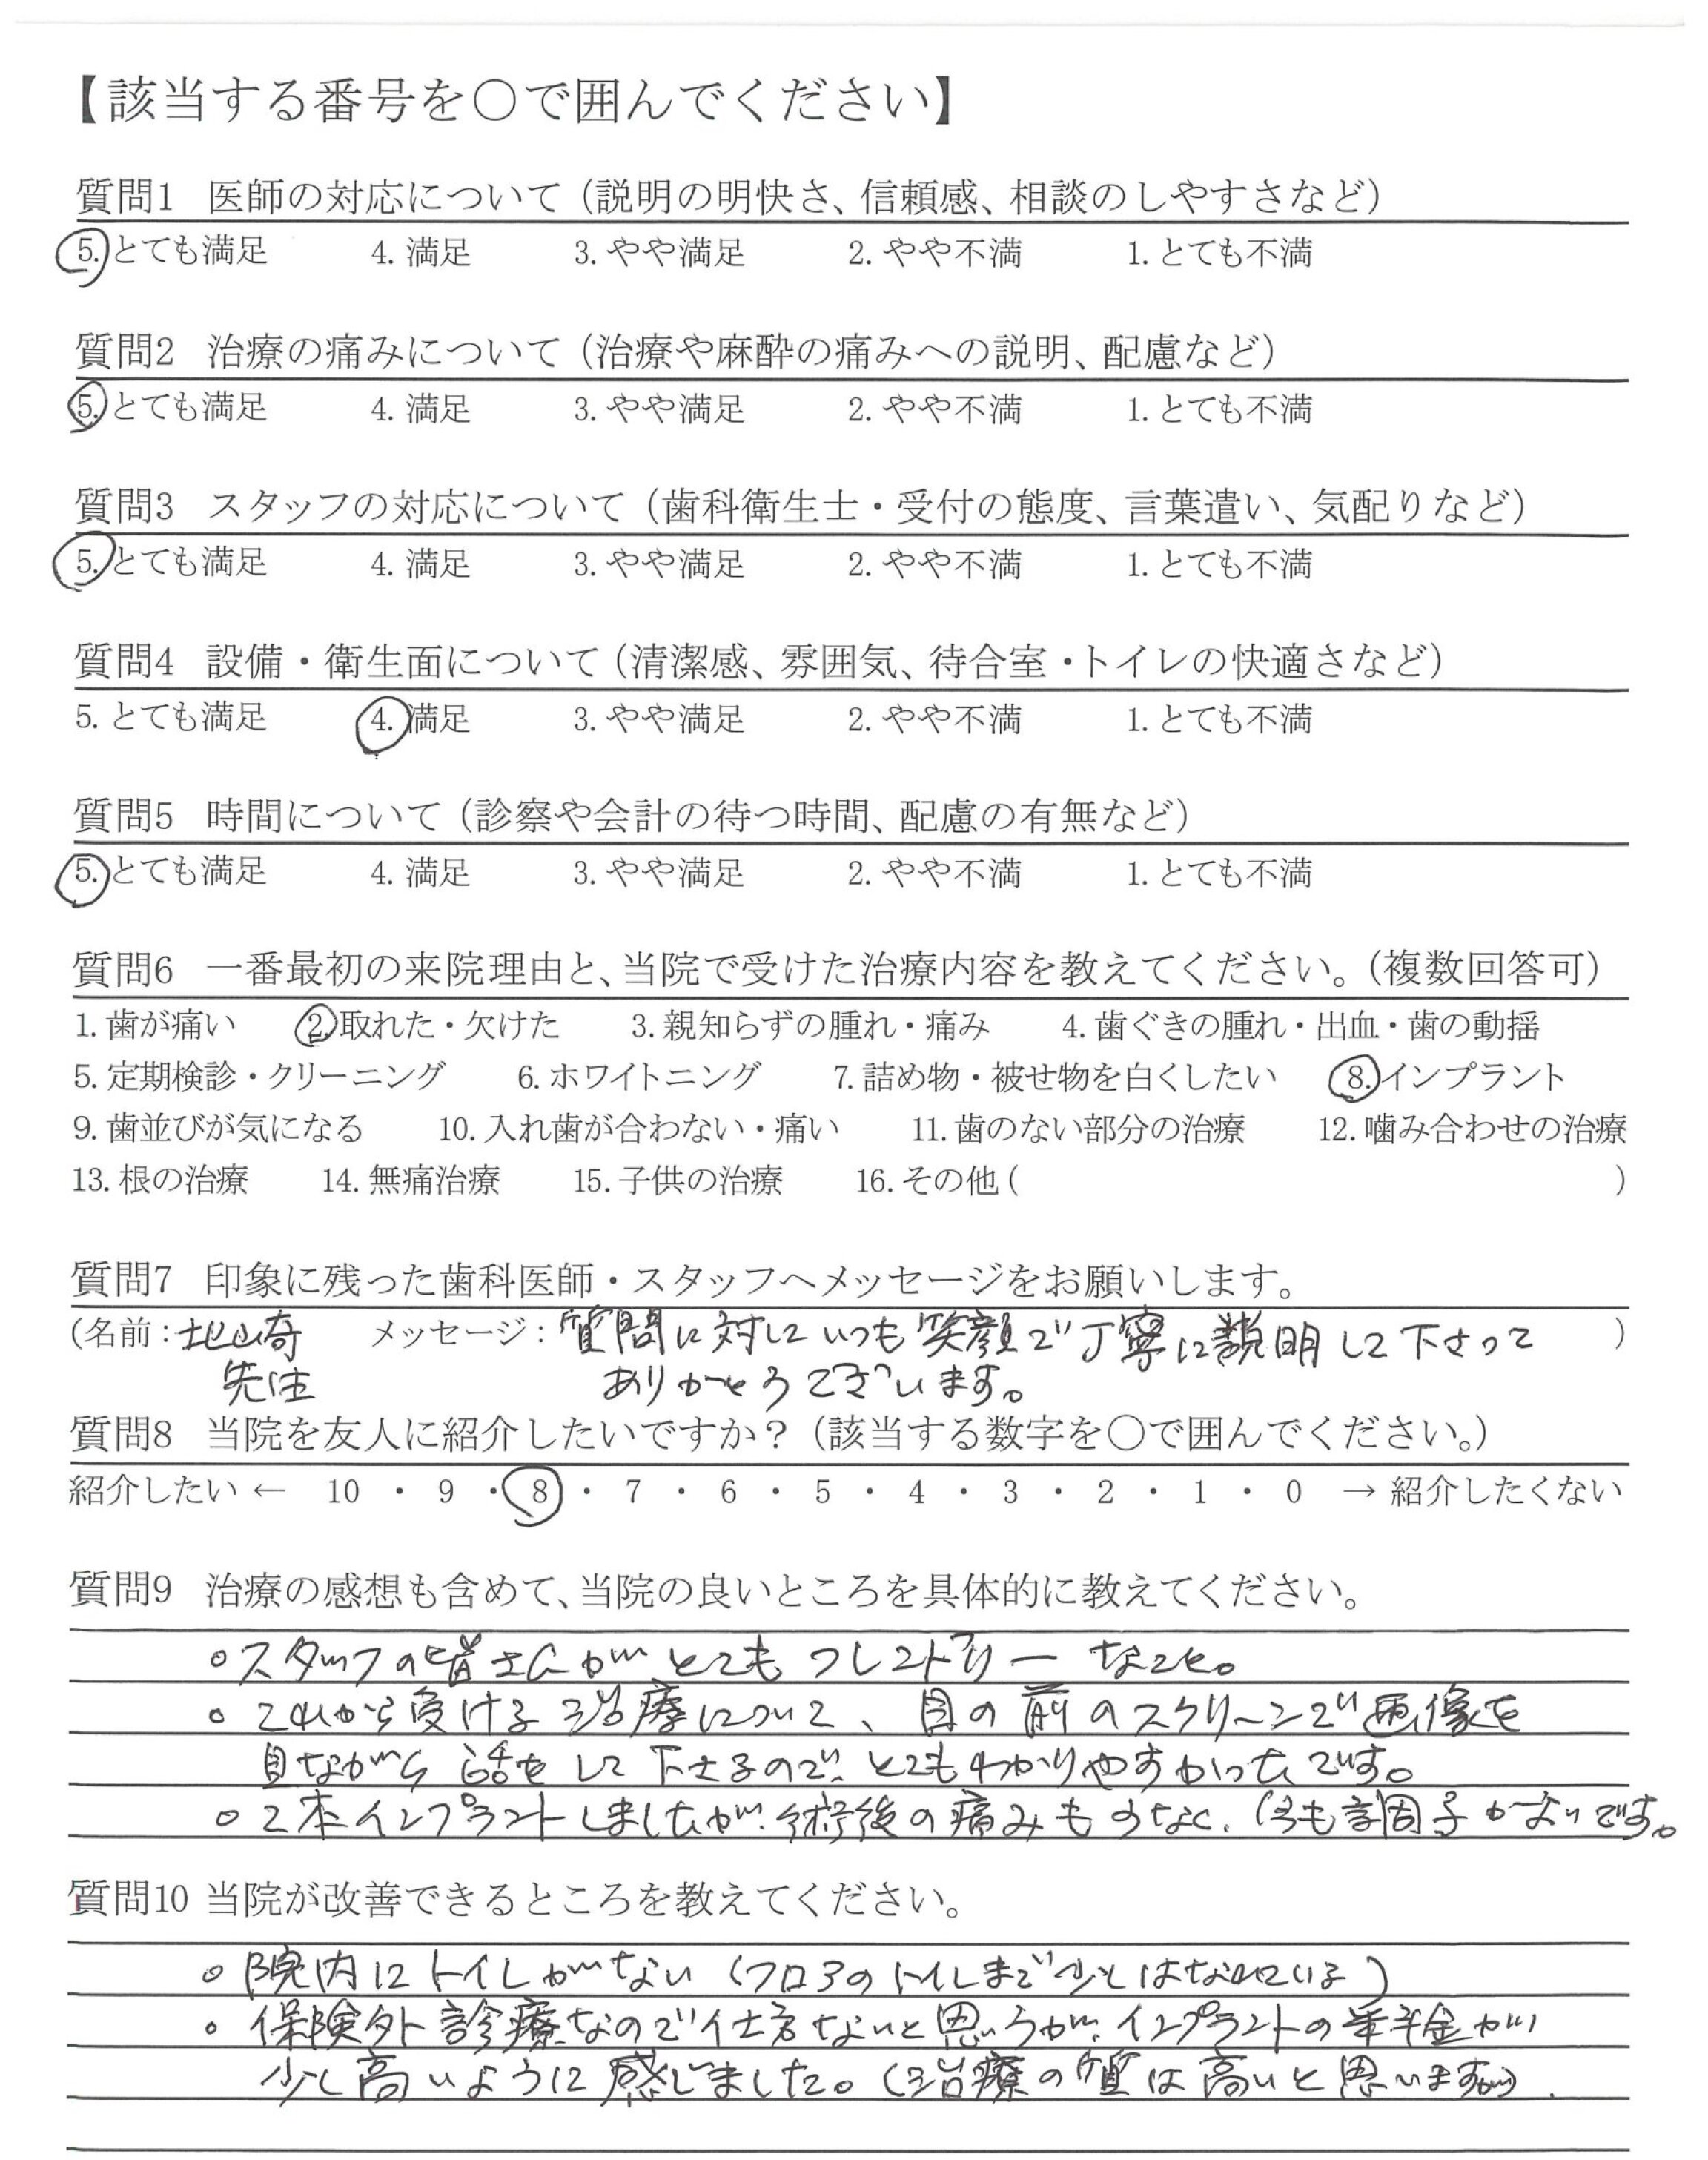 【該当する番号を〇で囲んでください】
質問1 医師の対応について（説明の明快さ、信頼感、相談のしやすさなど）
5. とても満足 4. 満足 3. やや満足 2. やや不満 1. とても不満
質問2 治療の痛みについて（治療や麻酔の痛みへの説明、配慮など）
5. とても満足 4. 満足 3. やや満足 2. やや不満 1. とても不満
質問3 スタッフの対応について（歯科衛生士・受付の態度、言葉遣い、気配りなど）
5. とても満足 4. 満足 3. やや満足 2. やや不満 1. とても不満
質問4 設備・衛生面について（清潔感、雰囲気、待合室・トイレの快適さなど）
5. とても満足 4. 満足 3. やや満足 2. やや不満 1. とても不満
質問5 時間について（診察や会計の待つ時間、配慮の有無など）
5. とても満足 4. 満足 3. やや満足 2. やや不満 1. とても不満
質問6 一番最初の来院理由と、当院で受けた治療内容を教えてください。（複数回答可）
1. 歯が痛い 2. 取れた・欠けた 3. 親知らずの腫れ・痛み 4. 歯ぐきの腫れ・出血・歯の動揺
5. 定期検診・クリーニング 6. ホワイトニング 7. 詰め物・被せ物を白くしたい 8. インプラント
9. 歯並びが気になる 10. 入れ歯が合わない・痛い 11. 歯のない部分の治療 12. 噛み合わせの治療
13. 根の治療 14. 無痛治療 15. 子供の治療 16. その他（ ）
質問7 印象に残った歯科医師・スタッフへメッセージをお願いします。
（名前： メッセージ：質問に対していつも笑顔で丁寧に説明して下さって ）
先生 ありがとうございます。
質問8 当院を友人に紹介したいですか？（該当する数字を〇で囲んでください。）
紹介したい ← 10 ・ 9 ・ 8 ・ 7 ・ 6 ・ 5 ・ 4 ・ 3 ・ 2 ・ 1 ・ 0 → 紹介したくない
質問9 治療の感想も含めて、当院の良いところを具体的に教えてください。
○スタッフの皆さんがとてもフレンドリーなこと。
○これから受ける治療について、目の前のスクリーンで画像を
見ながら話をして下さるので、とてもわかりやすかったです。
○2本インプラントしましたが、術後の痛みも少なく、今も調子がよいです。
質問10 当院が改善できるところを教えてください。
○院内にトイレがない（フロアのトイレまで少しはなれている）
○保険外診療なので仕方ないと思うが、インプラントの料金が
少し高いように感じました。（治療の質は高いと思いますが）.